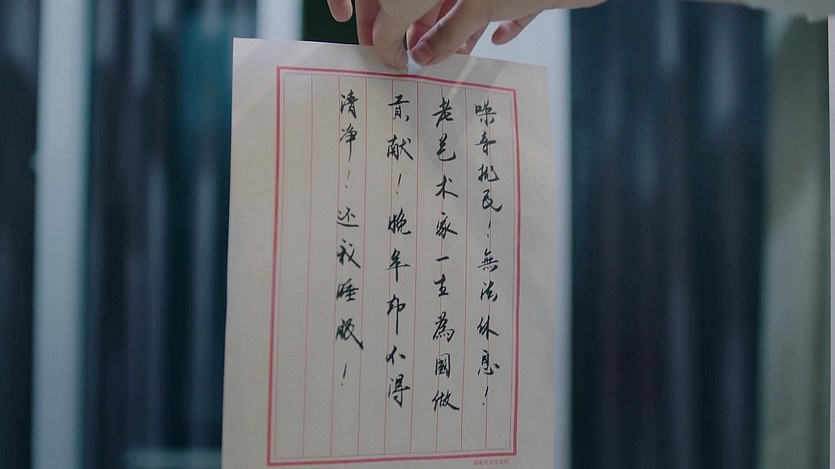 噪音扰民！無法休息！
老艺术家一生為國做
贡献！晚年却不得
清净！还我睡眠！